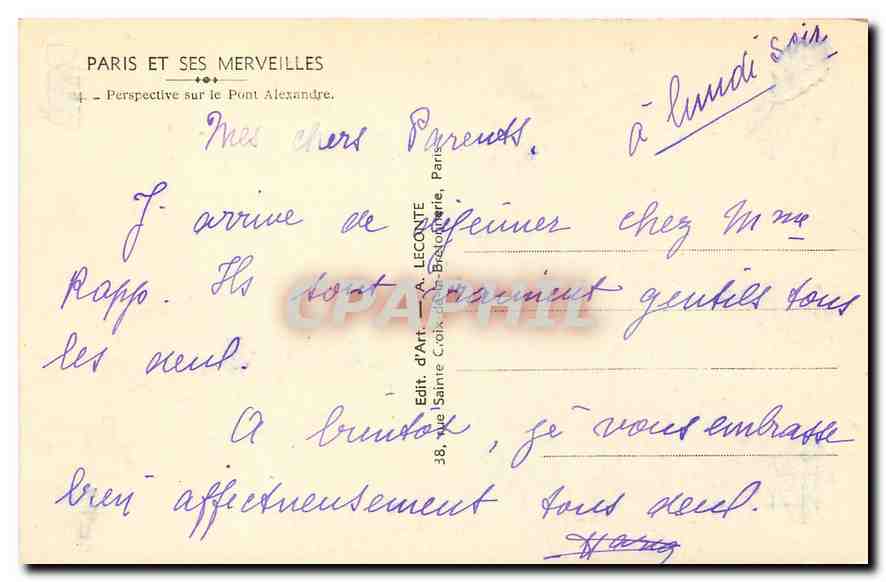 PARIS ET SES MERVEILLES
4. - Perspective sur le Pont Alexandre.
à lundi soir
Mes chers Parents.
J'arrive de déjeuner chez Mme
Rapp. Ils sont vraiment gentils tous
les deux.
A bientôt, je vous embrasse
bien affectueusement tous deux.
Edit. d'Art. — A. LECONTE
38, rue Sainte Croix-de-la-Bretonnerie, Paris
CPAPHIL